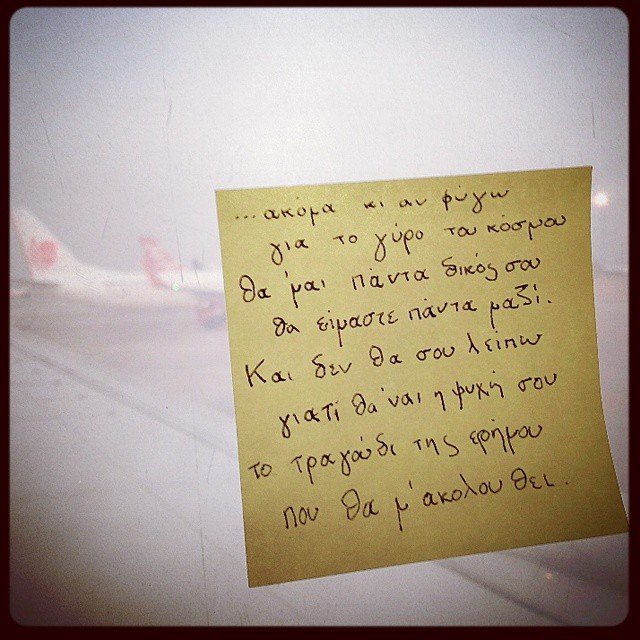 ...ακόμα κι αν φύγω
για το γύρο του κόσμου
θα 'μαι πάντα δικός σου
θα είμαστε πάντα μαζί.
Και δεν θα σου λείπω
γιατί θα'ναι η ψυχή σου
το τραγούδι της ερήμου
που θα μ'ακολουθει.